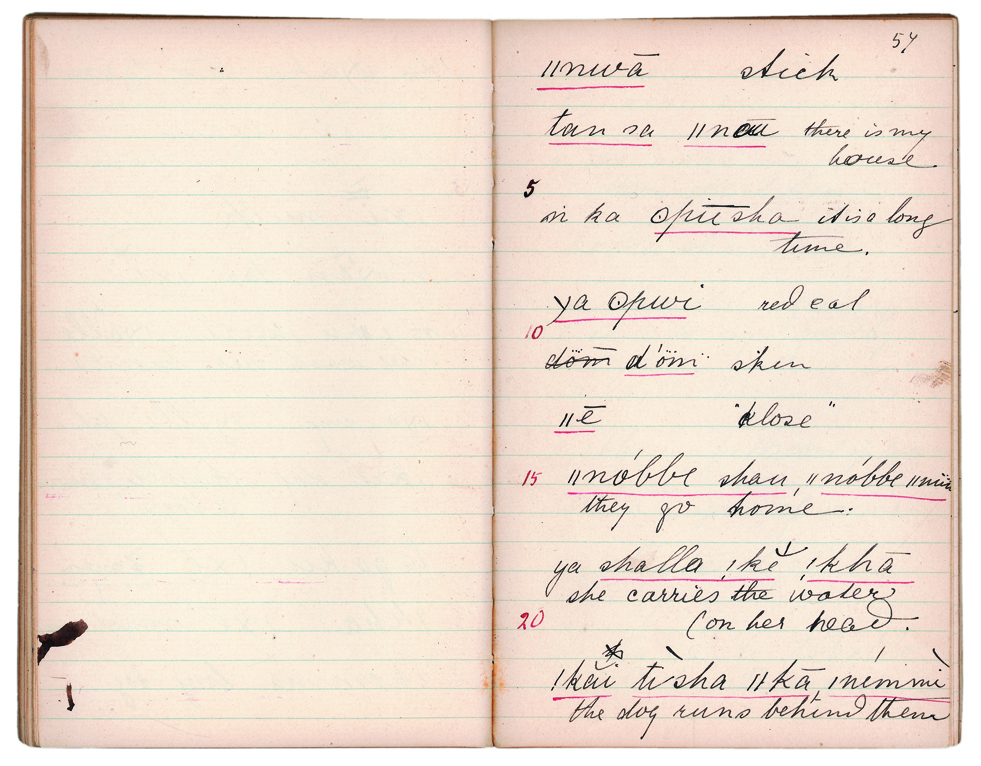 57
ǁnwā stick
tan sa ǁnau there is my
house
5
n ka ʘpūsha it is a long
time.
ya ʘpwi red cat
10
d'öni sken
ǁē "klose"
15 ǁnóbbe shau, ǁnóbbe
they go home.
ya shalla ǃkĕ ǃkhā
she carries the water
20 (on her head.
ǃkăi tì sha ǁkā ǃnémmì
the dog runs behind them